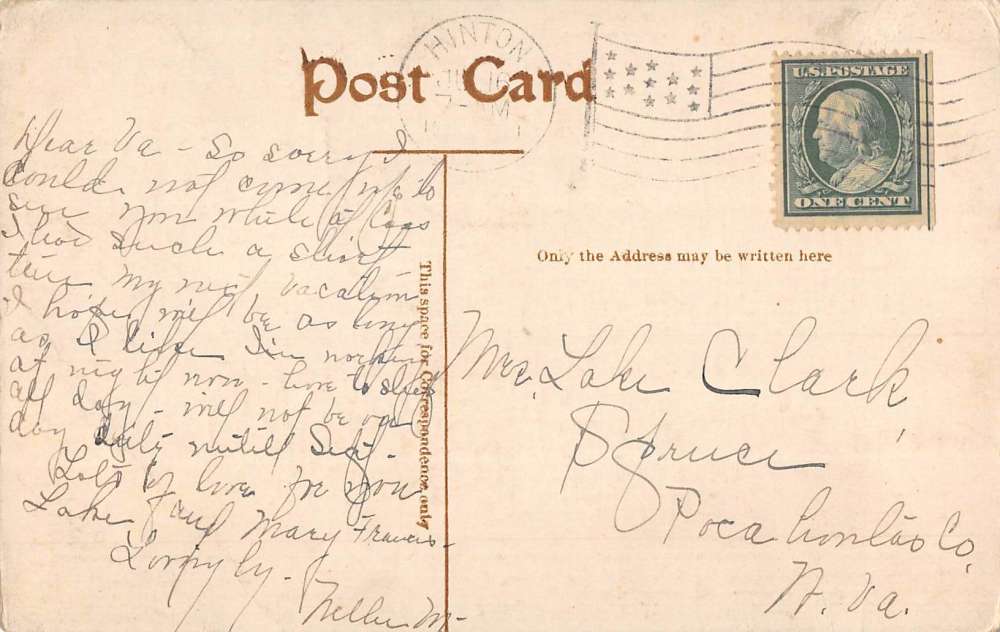 HINTON
Post Card
U.S. POSTAGE
ONE CENT
Dear Va - So sorry I
could not come up to
see you while at Cass
I had such a short
time my next vacation
I hope will be as long
as I like I'm working
at night now - have to sleep
all day - will not be on
day duty until Sept.
Lots of love for you
Lake, and Mary Francis.
Lovingly.
Nellie M-
This space for Correspondence only
Only the Address may be written here
Mrs. Lake Clark,
Spruce
Pocahontas Co.
W. Va.